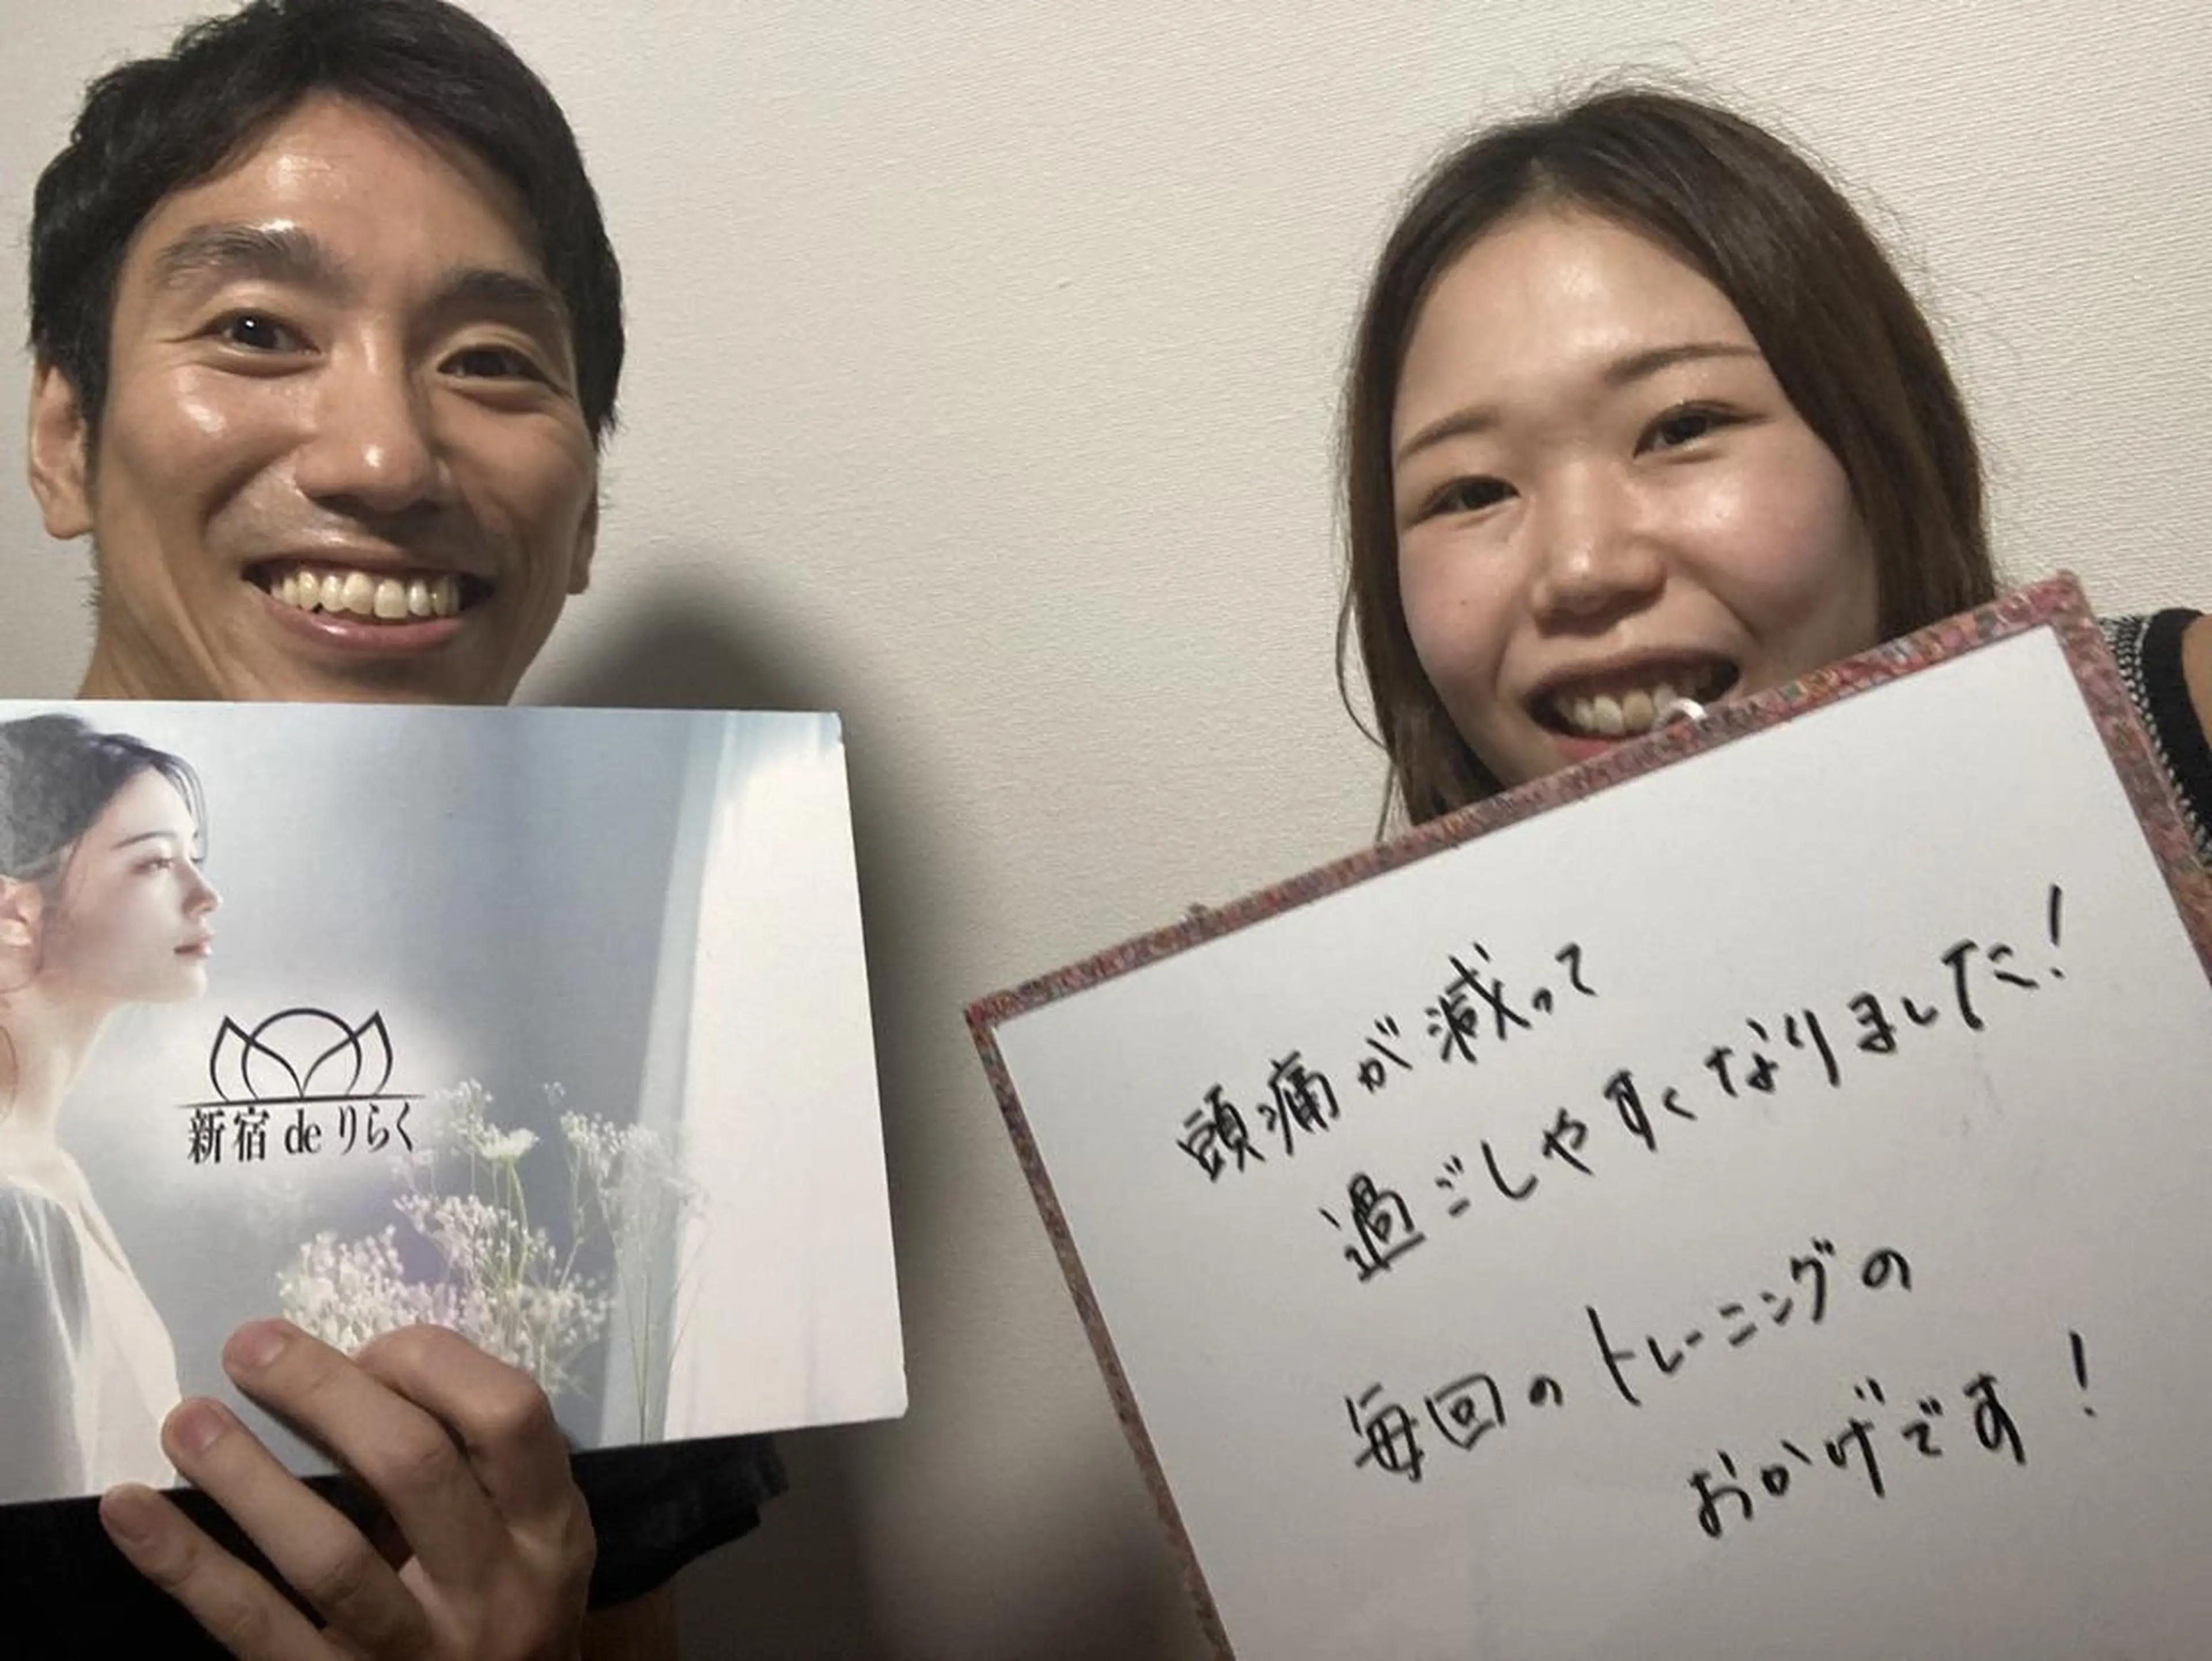 新宿 de りらく
頭痛が減って
過ごしやすくなりました!
毎回のトレーニングの
おかげです!